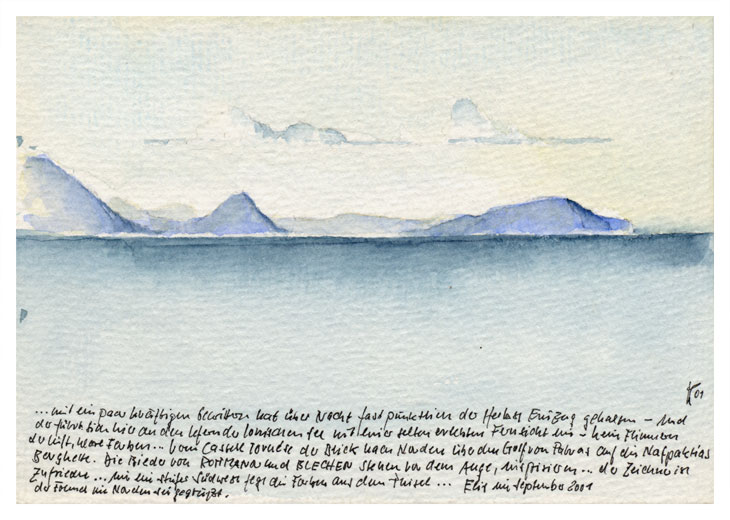 01
... mit ein paar kräftigen Gewittern hat über Nacht fast pünktlich der Herbst Einzug gehalten – und
der führt sich hier an den Ufern der Ionischen See mit einer selten erlebten Fernsicht ein – kein Flimmern
der Luft, klare Farben... vom Castell Tornese der Blick nach Norden über den Golf von Patras auf die Nafpaktias
Bergkette. Die Bilder von ROTTMANN und BLECHEN stehen vor dem Auge, inspirieren... der Zeichner ist
zufrieden ... nur ein steifer Südwest fegt die Farben aus dem Pinsel ... Elis im September 2001
der Freund im Norden sei gegrüßt.